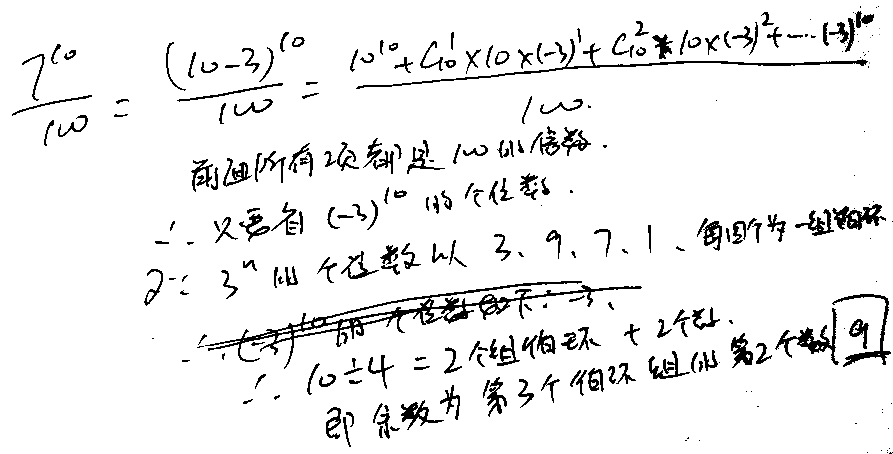 7^10/100 = (10-3)^10/100 = (10^10 + C_10^1 × 10 × (-3)^1 + C_10^2 × 10 × (-3)^2 + ... (-3)^10)/100.
前面所有项都是 100 的倍数.
∴ 只要看 (-3)^10 的个位数.
又∵ 3^n 的个位数以 3、9、7、1、每四个为一组循环
∴ (-3)^10 的个位数如下: -3、
∴ 10÷4 = 2个组循环 + 2个数.
即 余数为 第3个循环组的第2个数 9